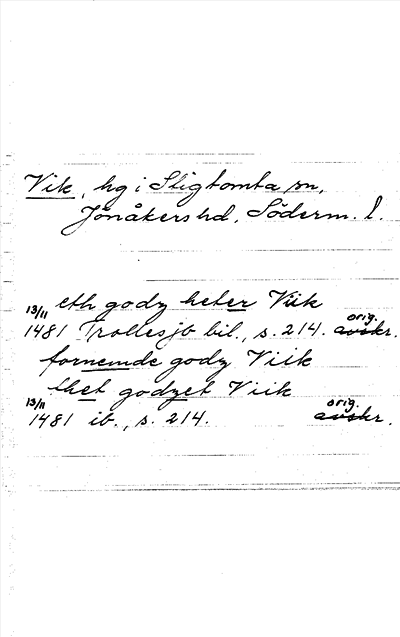 Vik, hg i Stigtomta sn,
Jönåkers hd, Söderm. l.
eth godz heter Viik
13/11 1481 Trollesjö bil., s. 214. orig. avskr.
fornemde godz Viik
thet godzet Viik
13/11 1481 ib., s. 214. orig. avskr.